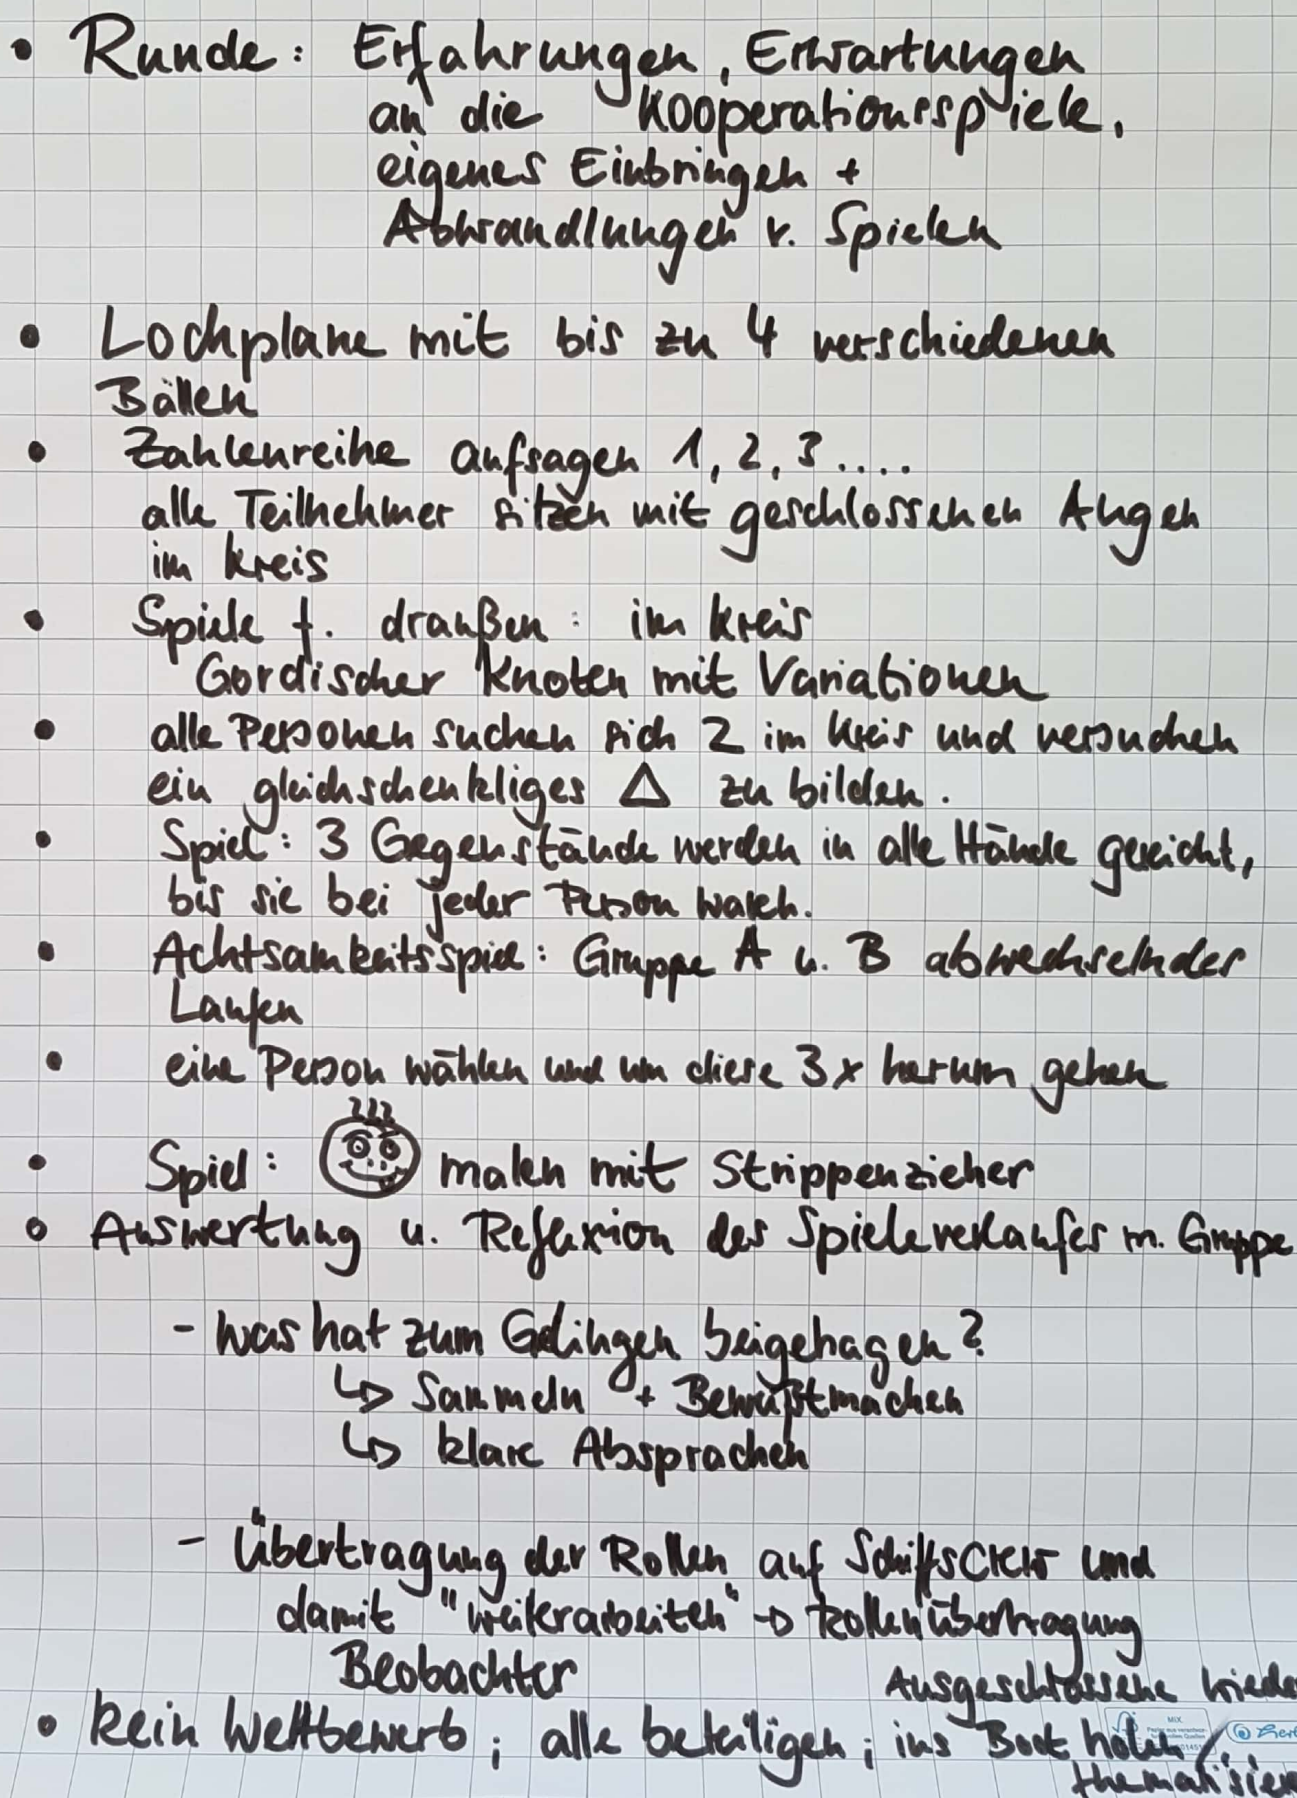 • Runde: Erfahrungen, Erwartungen
an die Kooperationsspiele,
eigenes Einbringen +
Abwandlungen v. Spielen
• Lochplane mit bis zu 4 verschiedenen
Bällen
• Zahlenreihe aufsagen 1, 2, 3....
alle Teilnehmer sitzen mit geschlossenen Augen
im Kreis
• Spiele f. draußen: im Kreis
Gordischer Knoten mit Variationen
• alle Personen suchen sich 2 im Kreis und versuchen
ein gleichschenkliges △ zu bilden.
• Spiel: 3 Gegenstände werden in alle Hände gereicht,
bis sie bei jeder Person waren.
• Achtsamkeitsspiel: Gruppe A u. B abwechselndes
Laufen
• eine Person wählen und um diese 3x herum gehen
• Spiel: malen mit Strippenzieher
• Auswertung u. Reflexion des Spieleverlaufes m. Gruppe
- was hat zum Gelingen beigetragen?
↳ Sammeln + Bewußtmachen
↳ klare Absprachen
- Übertragung der Rollen auf Schiffscrew und
damit "weiterarbeiten" → Rollenübertragung
Beobachter
Ausgeschlossene wiede
• kein Wettbewerb; alle beteiligen; ins Boot holen/
thematisier